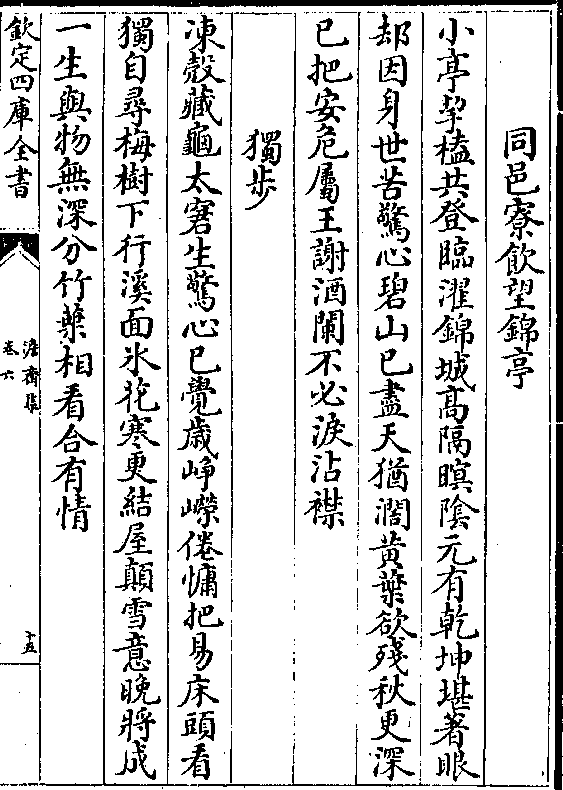 同邑寮飲望錦亭
小亭挈榼共登臨濯錦城高隔暝陰元有乾坤堪著眼
却因身世苦驚心碧山已盡天猶濶黄葉欲殘秋更深
已把安危屬王謝酒闌不必淚沾襟
獨步
凍殻藏龜太窘生驚心已覺歳崢嶸倦慵把易床頭看
獨自尋梅樹下行溪面氷花寒更結屋顛雪意晚將成
一生與物無深分竹藥相看合有情
欽定四庫全書
澹齋集
卷六
十五